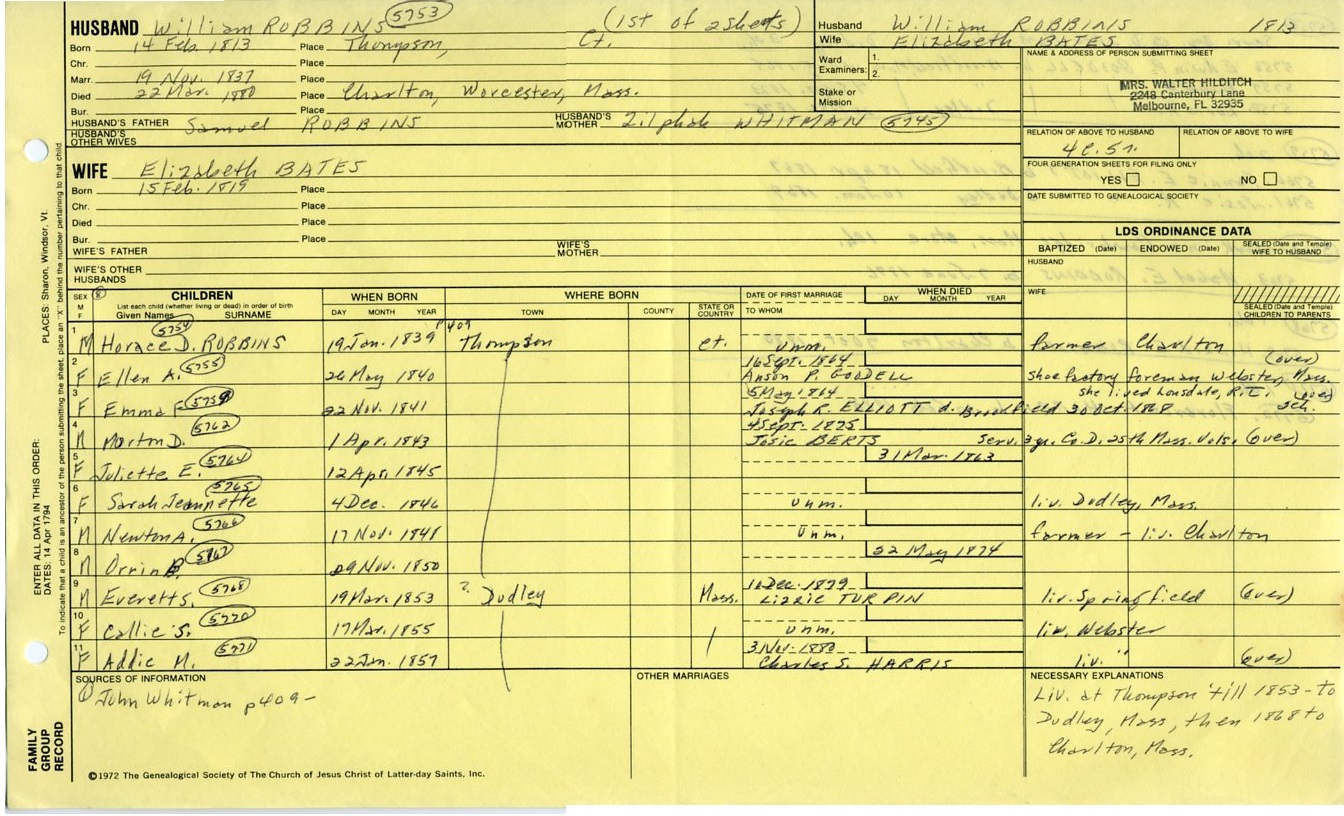 HUSBAND William ROBBINS 5753 (1st of 2 sheets)
Born 14 Feb. 1813 Place Thompson, Ct.
Chr. Place
Marr. 19 Nov. 1837 Place
Died 22 Mar. 1880 Place Charlton, Worcester, Mass.
Bur. Place
HUSBAND'S FATHER Samuel ROBBINS HUSBAND'S MOTHER Zilphah WHITMAN 5745
HUSBAND'S OTHER WIVES
Husband William ROBBINS 1813
Wife Elizabeth BATES
Ward Examiners: 1.
2.
Stake or Mission
NAME & ADDRESS OF PERSON SUBMITTING SHEET
MRS. WALTER HILDITCH
2248 Canterbury Lane
Melbourne, FL 32935
RELATION OF ABOVE TO HUSBAND RELATION OF ABOVE TO WIFE
4c.5r.
FOUR GENERATION SHEETS FOR FILING ONLY
YES NO
DATE SUBMITTED TO GENEALOGICAL SOCIETY
WIFE Elizabeth BATES
Born 15 Feb. 1819 Place
Chr. Place
Died Place
Bur. Place
WIFE'S FATHER WIFE'S MOTHER
WIFE'S OTHER HUSBANDS
LDS ORDINANCE DATA
BAPTIZED (Date) ENDOWED (Date) SEALED (Date and Temple) WIFE TO HUSBAND
HUSBAND
WIFE
SEALED (Date and Temple) CHILDREN TO PARENTS
SEX M F CHILDREN WHEN BORN WHERE BORN DATE OF FIRST MARRIAGE WHEN DIED
List each child (whether living or dead) in order of birth
Given Names SURNAME DAY MONTH YEAR TOWN COUNTY STATE OR COUNTRY TO WHOM DAY MONTH YEAR
1 M Horace D. ROBBINS 5754 19 Jan. 1839 p409 Thompson Ct. Unm. farmer Charlton
2 F Ellen A. 5755 26 May 1840 16 Sept. 1864 Anson P. GOODELL shoe factory foreman Webster, Mass. (over)
3 F Emma F. 5759 22 Nov. 1841 5 May 1864 Joseph R. ELLIOTT d. Brookfield 30 Oct 1868 she lived Lonsdale, R.I. (over)
4 M Morton D. 5762 1 Apr. 1843 4 Sept. 1875 Josie BERTS Serv. 3 yr. Co. D. 25th Mass. Vols. (over)
5 F Juliette E. 5764 12 Apr. 1845 31 Mar. 1863
6 F Sarah Jeannette 5765 4 Dec. 1846 Unm. liv. Dudley, Mass.
7 M Newton A. 5766 17 Nov. 1848 Unm. farmer - liv. Charlton
8 M Orrin B. 5767 29 Nov. 1850 22 May 1874
9 M Everett S. 5768 19 Mar. 1853 ? Dudley Mass. 1 Dec. 1879 Lizzie TURPIN liv. Springfield (over)
10 F Callie S. 5770 17 Mar. 1855 Unm. liv. Webster
11 F Addie M. 5771 22 Jan. 1857 3 Nov. 1880 Charles S. HARRIS liv. " (over)
SOURCES OF INFORMATION
① John Whitman p409-
OTHER MARRIAGES
NECESSARY EXPLANATIONS
Liv. at Thompson 'till 1853 - to
Dudley, Mass, then 1868 to
Charlton, Mass.
©1972 The Genealogical Society of The Church of Jesus Christ of Latter-day Saints, Inc.
FAMILY GROUP RECORD
ENTER ALL DATA IN THIS ORDER:
DATES: 14 Apr 1794
PLACES: Sharon, Windsor, Vt.
To indicate that a child is an ancestor of the person submitting the sheet, place an "X" behind the number pertaining to that child.